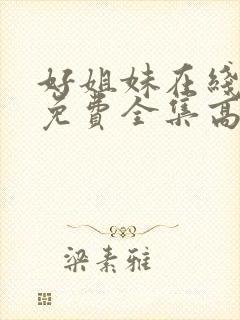 好姐妹在綫
免費全集高
梁素雅